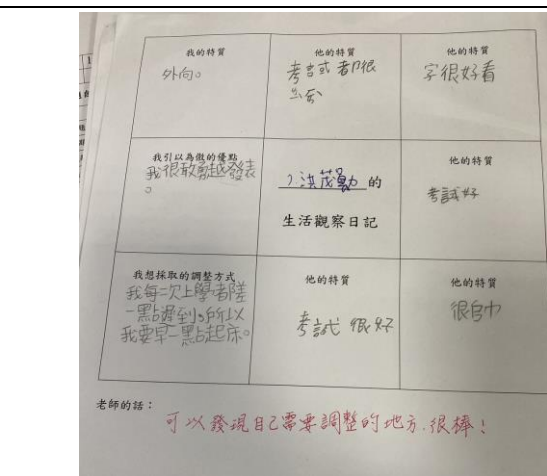 我的特質
外向。
他的特質
考試都很
他的特質
字很好看
我引以為傲的優點
我很敢勇越發表
。
的
生活觀察日記
他的特質
考試好
我想採取的調整方式
我每一次上學者陸
一點遲到。所以
我要早一點起床。
他的特質
考試很好
他的特質
很
老師的話：
可以發現自己需要調整的地方.很棒！